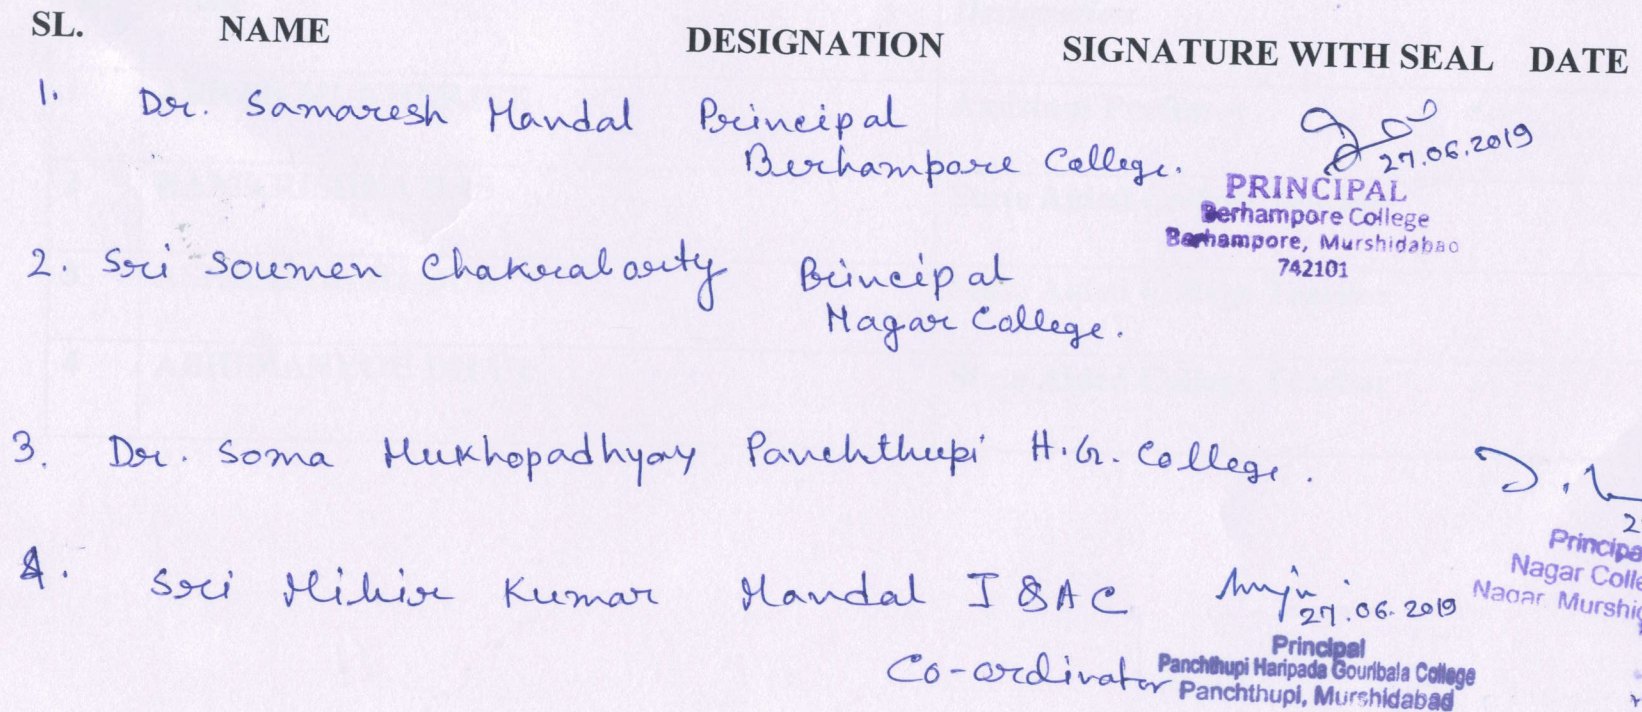 SL. NAME DESIGNATION SIGNATURE WITH SEAL DATE
1. Dr. Samaresh Mandal Principal
Berhampore College.
27.06.2019
PRINCIPAL
Berhampore College
Berhampore, Murshidabad
742101
2. Sri Soumen Chakrabarty Principal
Nagar College.
3. Dr. Soma Mukhopadhyay Panchthupi H.G. College.
2
Principa
Nagar Colle
Nagar Murshid
4. Sri Mihir Kumar Mandal I&AC
Co-ordinator
27.06.2019
Principal
Panchthupi Haripada Gouribala College
Panchthupi, Murshidabad